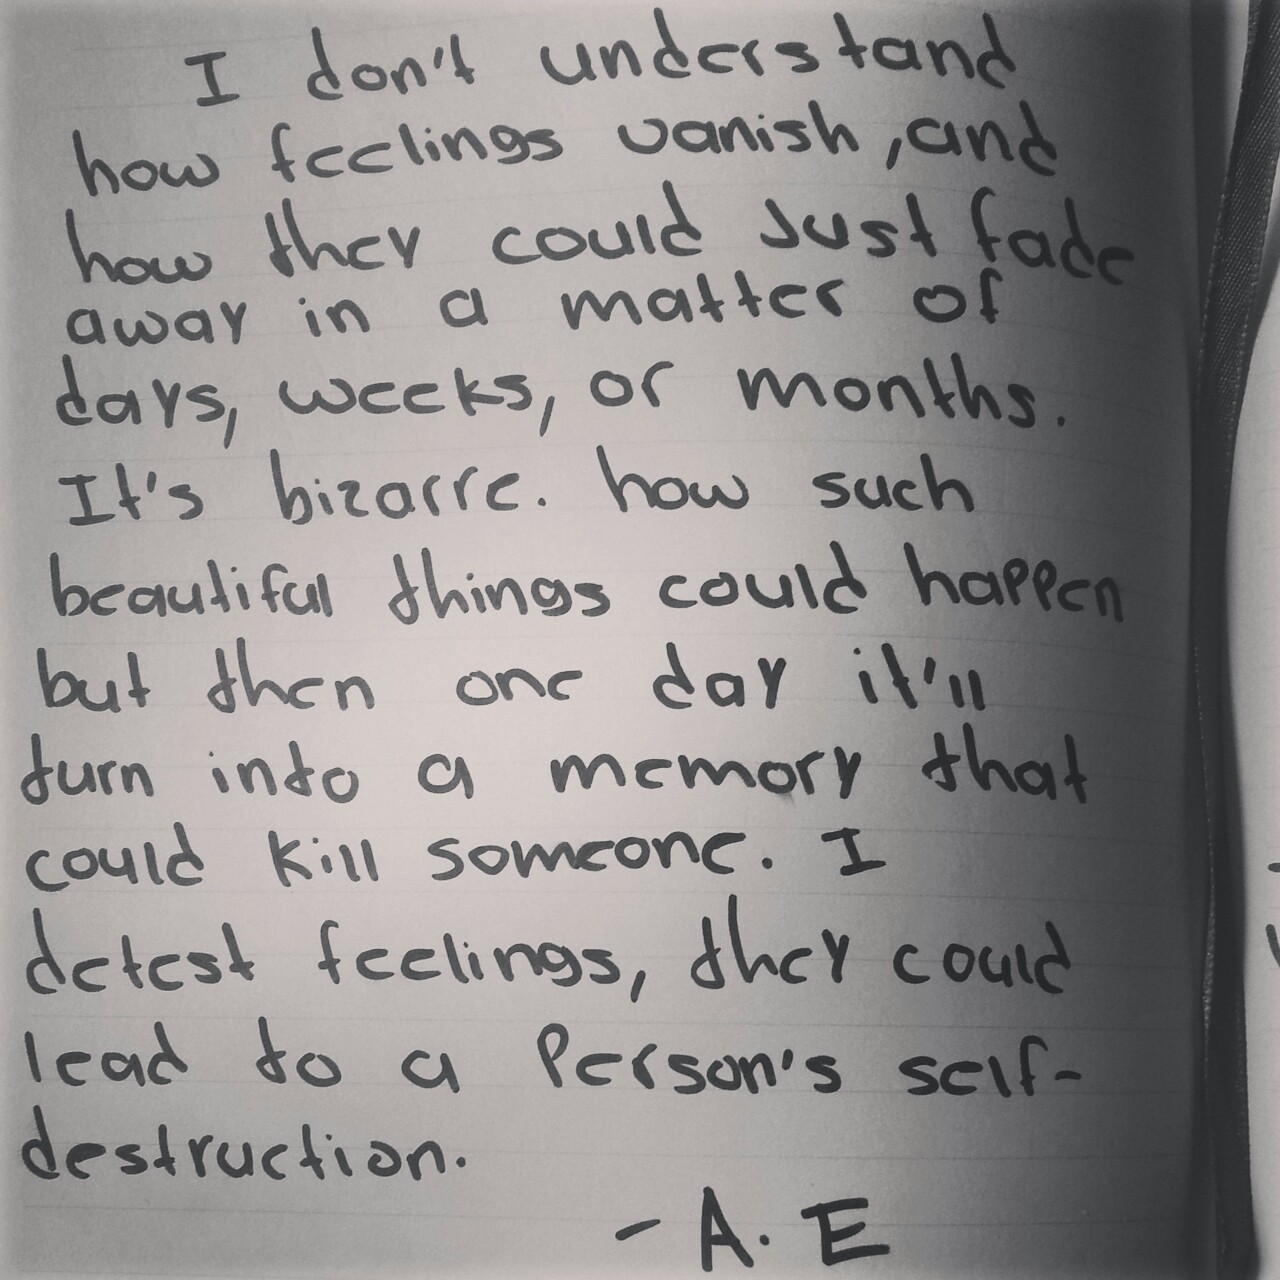 I don't understand
how feelings vanish, and
how they could Just fade
away in a matter of
days, weeks, or months.
It's bizarre. how such
beautiful things could happen
but then one day it'll
turn into a memory that
could kill someone. I
detest feelings, they could
lead to a Person's self-
destruction.
- A. E